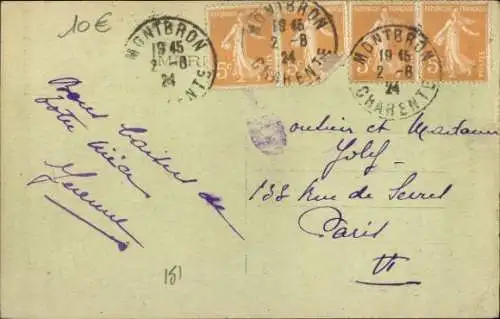 10 €
MONTBRON
19 45
2 - 8
24
CHARENTE
MONTBRON
19 45
2 - 8
24
CHARENTE
MONTBRON
19 45
2 - 8
24
CHARENTE
Bons baisers de
votre nièce
Monsieur et Madame
Joly
138 rue de Sevres
Paris
VI
151